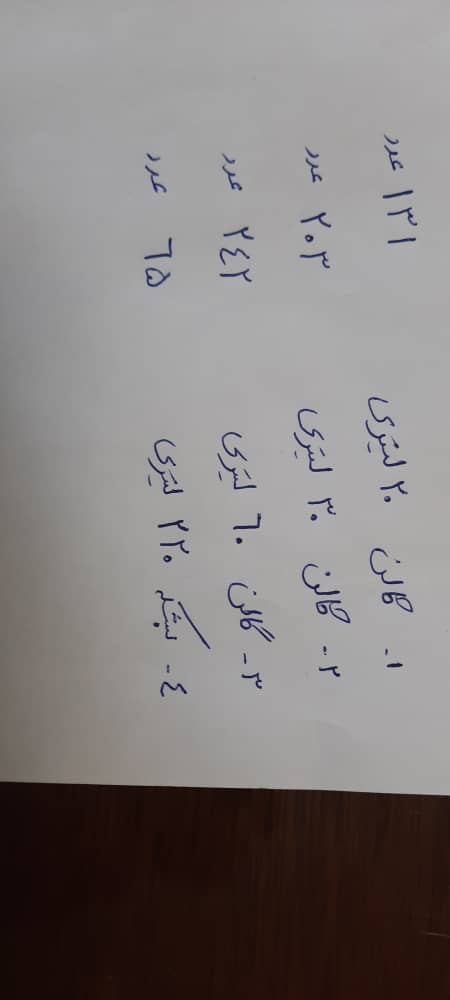 ۱- گالن ۲۰ لیتری ۱۳۱ عدد
۲- گالن ۳۰ لیتری ۲۰۳ عدد
۳- گالن ۶۰ لیتری ۲۴۲ عدد
۴- بشکه ۲۲۰ لیتری ۶۵ عدد